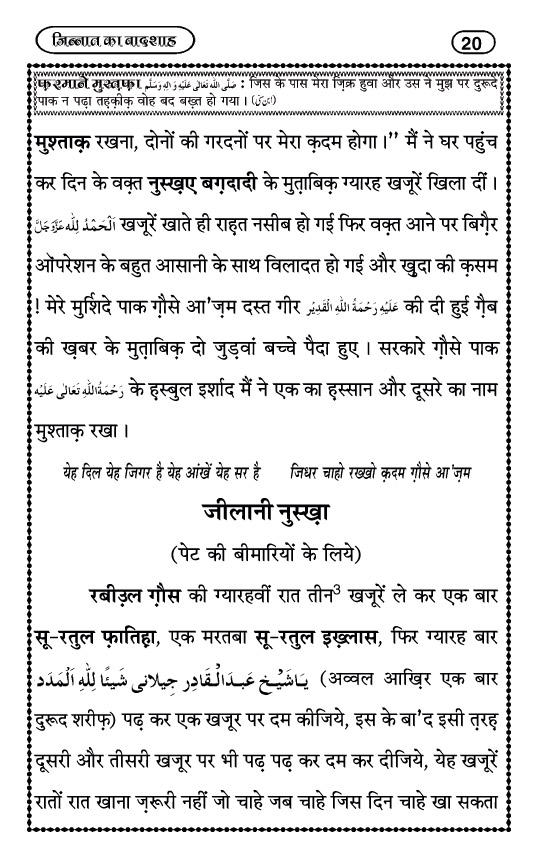 जिन्नात का बादशाह
20
फ़रमाने मुस्तफ़ा صَلَّى اللهُ تَعَالٰى عَلَيْهِ وَاٰلِهٖ وَسَلَّم : जिस के पास मेरा ज़िक्र हुवा और उस ने मुझ पर दुरूदे
पाक न पढ़ा तहक़ीक़ वोह बद बख़्त हो गया । (ابن سنی)
मुश्ताक़ रखना, दोनों की गरदनों पर मेरा क़दम होगा ।’’ मैं ने घर पहुंच
कर दिन के वक़्त नुस्ख़ए बग़दादी के मुत़ाबिक़ ग्यारह खजूरें खिला दीं ।
اَلْحَمْدُ لِلّٰه عَزَّوَجَلَّ खजूरें खाते ही राहत नसीब हो गई फिर वक़्त आने पर बिग़ैर
ऑपरेशन के बहुत आसानी के साथ विलादत हो गई और खुदा की क़सम
! मेरे मुर्शिदे पाक ग़ौसे आ'ज़म दस्त गीर عَلَيْهِ رَحْمَةُ اللهِ الْقَدِيْر की दी हुई ग़ैब
की ख़बर के मुत़ाबिक़ दो जुड़वां बच्चे पैदा हुए । सरकारे ग़ौसे पाक
رَحْمَةُ اللهِ تَعَالٰى عَلَيْه के हस्बुल इर्शाद मैं ने एक का हस्सान और दूसरे का नाम
मुश्ताक़ रखा ।
येह दिल येह जिगर है येह आंखें येह सर है जिधर चाहो रख्खो क़दम ग़ौसे आ'ज़म
जीलानी नुस्ख़ा
(पेट की बीमारियों के लिये)
रबीउ़ल ग़ौस की ग्यारहवीं रात तीन3 खजूरें ले कर एक बार
सू-रतुल फ़ातिह़ा, एक मरतबा सू-रतुल इख़्लास, फिर ग्यारह बार
يَاشَيْخ عَبدَالْقَادِر جِيلانى شَيئًا لِلّٰهِ اَلْمَدَد (अव्वल आख़िर एक बार
दुरूद शरीफ़) पढ़ कर एक खजूर पर दम कीजिये, इस के बा'द इसी त़रह़
दूसरी और तीसरी खजूर पर भी पढ़ पढ़ कर दम कर दीजिये, येह खजूरें
रातों रात खाना ज़रूरी नहीं जो चाहे जब चाहे जिस दिन चाहे खा सकता